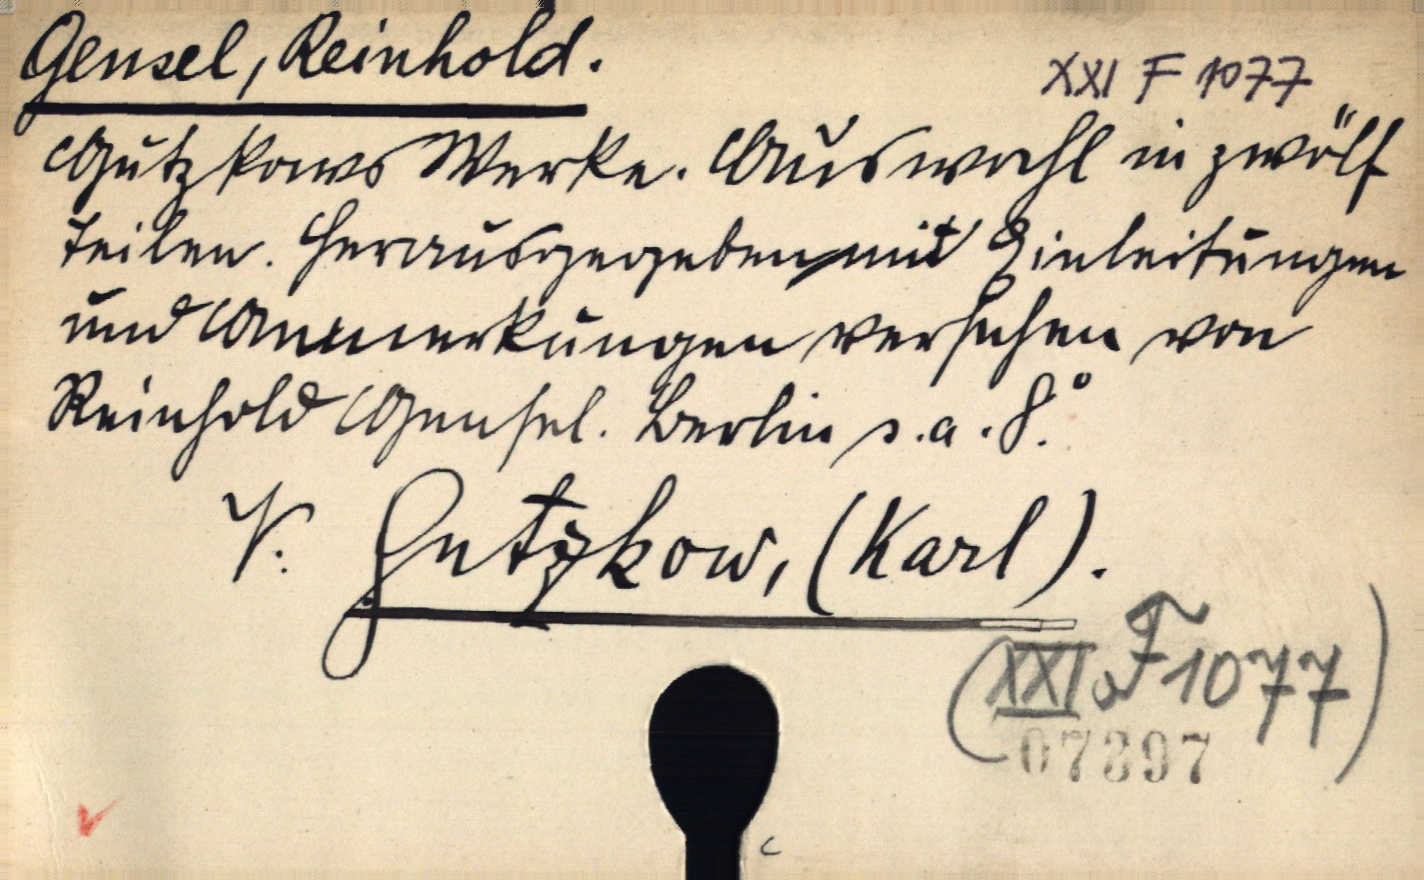 Gensel, Reinhold.
XXI F 1077
Gutzkows Werke. Auswahl in zwölf
Teilen. Herausgegeben, mit Einleitungen
und Anmerkungen versehen von
Reinhold Gensel. Berlin s. a. 8°.
V. Gutzkow, (Karl).
(XXI. F 1077)
07397